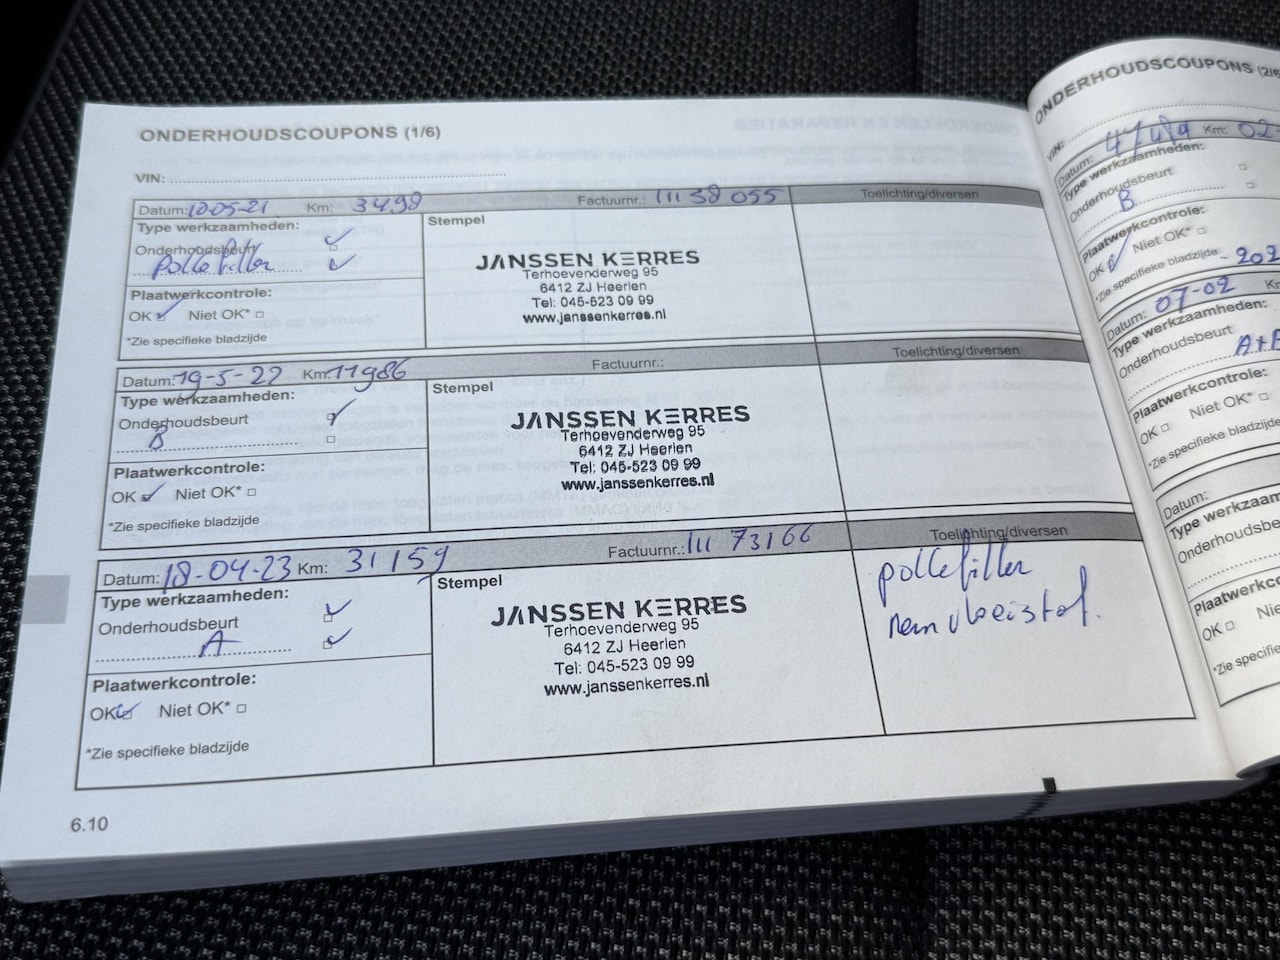 ONDERHOUDSCOUPONS (1/6)
VIN:
Datum: 10-05-21 Km: 3498 Factuurnr.: 111 38 055 Toelichting/diversen
Type werkzaamheden:
Onderhoudsbeurt
Pollefiller
Plaatwerkcontrole:
OK Niet OK*
*Zie specifieke bladzijde
Stempel
JANSSEN KERRES
Terhoevenderweg 95
6412 ZJ Heerlen
Tel: 045-523 09 99
www.janssenkerres.nl
Datum: 19-5-22 Km: 11986 Factuurnr.: Toelichting/diversen
Type werkzaamheden:
Onderhoudsbeurt
B
Plaatwerkcontrole:
OK Niet OK*
*Zie specifieke bladzijde
Stempel
JANSSEN KERRES
Terhoevenderweg 95
6412 ZJ Heerlen
Tel: 045-523 09 99
www.janssenkerres.nl
Datum: 18-04-23 Km: 31159 Factuurnr.: 111 73166 Toelichting/diversen
Type werkzaamheden:
Onderhoudsbeurt
A
Plaatwerkcontrole:
OK Niet OK*
*Zie specifieke bladzijde
Stempel
JANSSEN KERRES
Terhoevenderweg 95
6412 ZJ Heerlen
Tel: 045-523 09 99
www.janssenkerres.nl
pollefiller
remvloeistof.
6.10
ONDERHOUDSCOUPONS (2/6
VIN:
Datum: Km: 02
Type werkzaamheden:
Onderhoudsbeurt
B
Plaatwerkcontrole:
OK Niet OK*
*Zie specifieke bladzijde
Datum: 07-02-202
Type werkzaamheden:
Onderhoudsbeurt
A+B
Plaatwerkcontrole:
OK Niet OK*
*Zie specifieke bladzijde
Datum:
Type werkzaam
Onderhoudsbeur
Plaatwerkcontrol
OK Nie
*Zie specifie